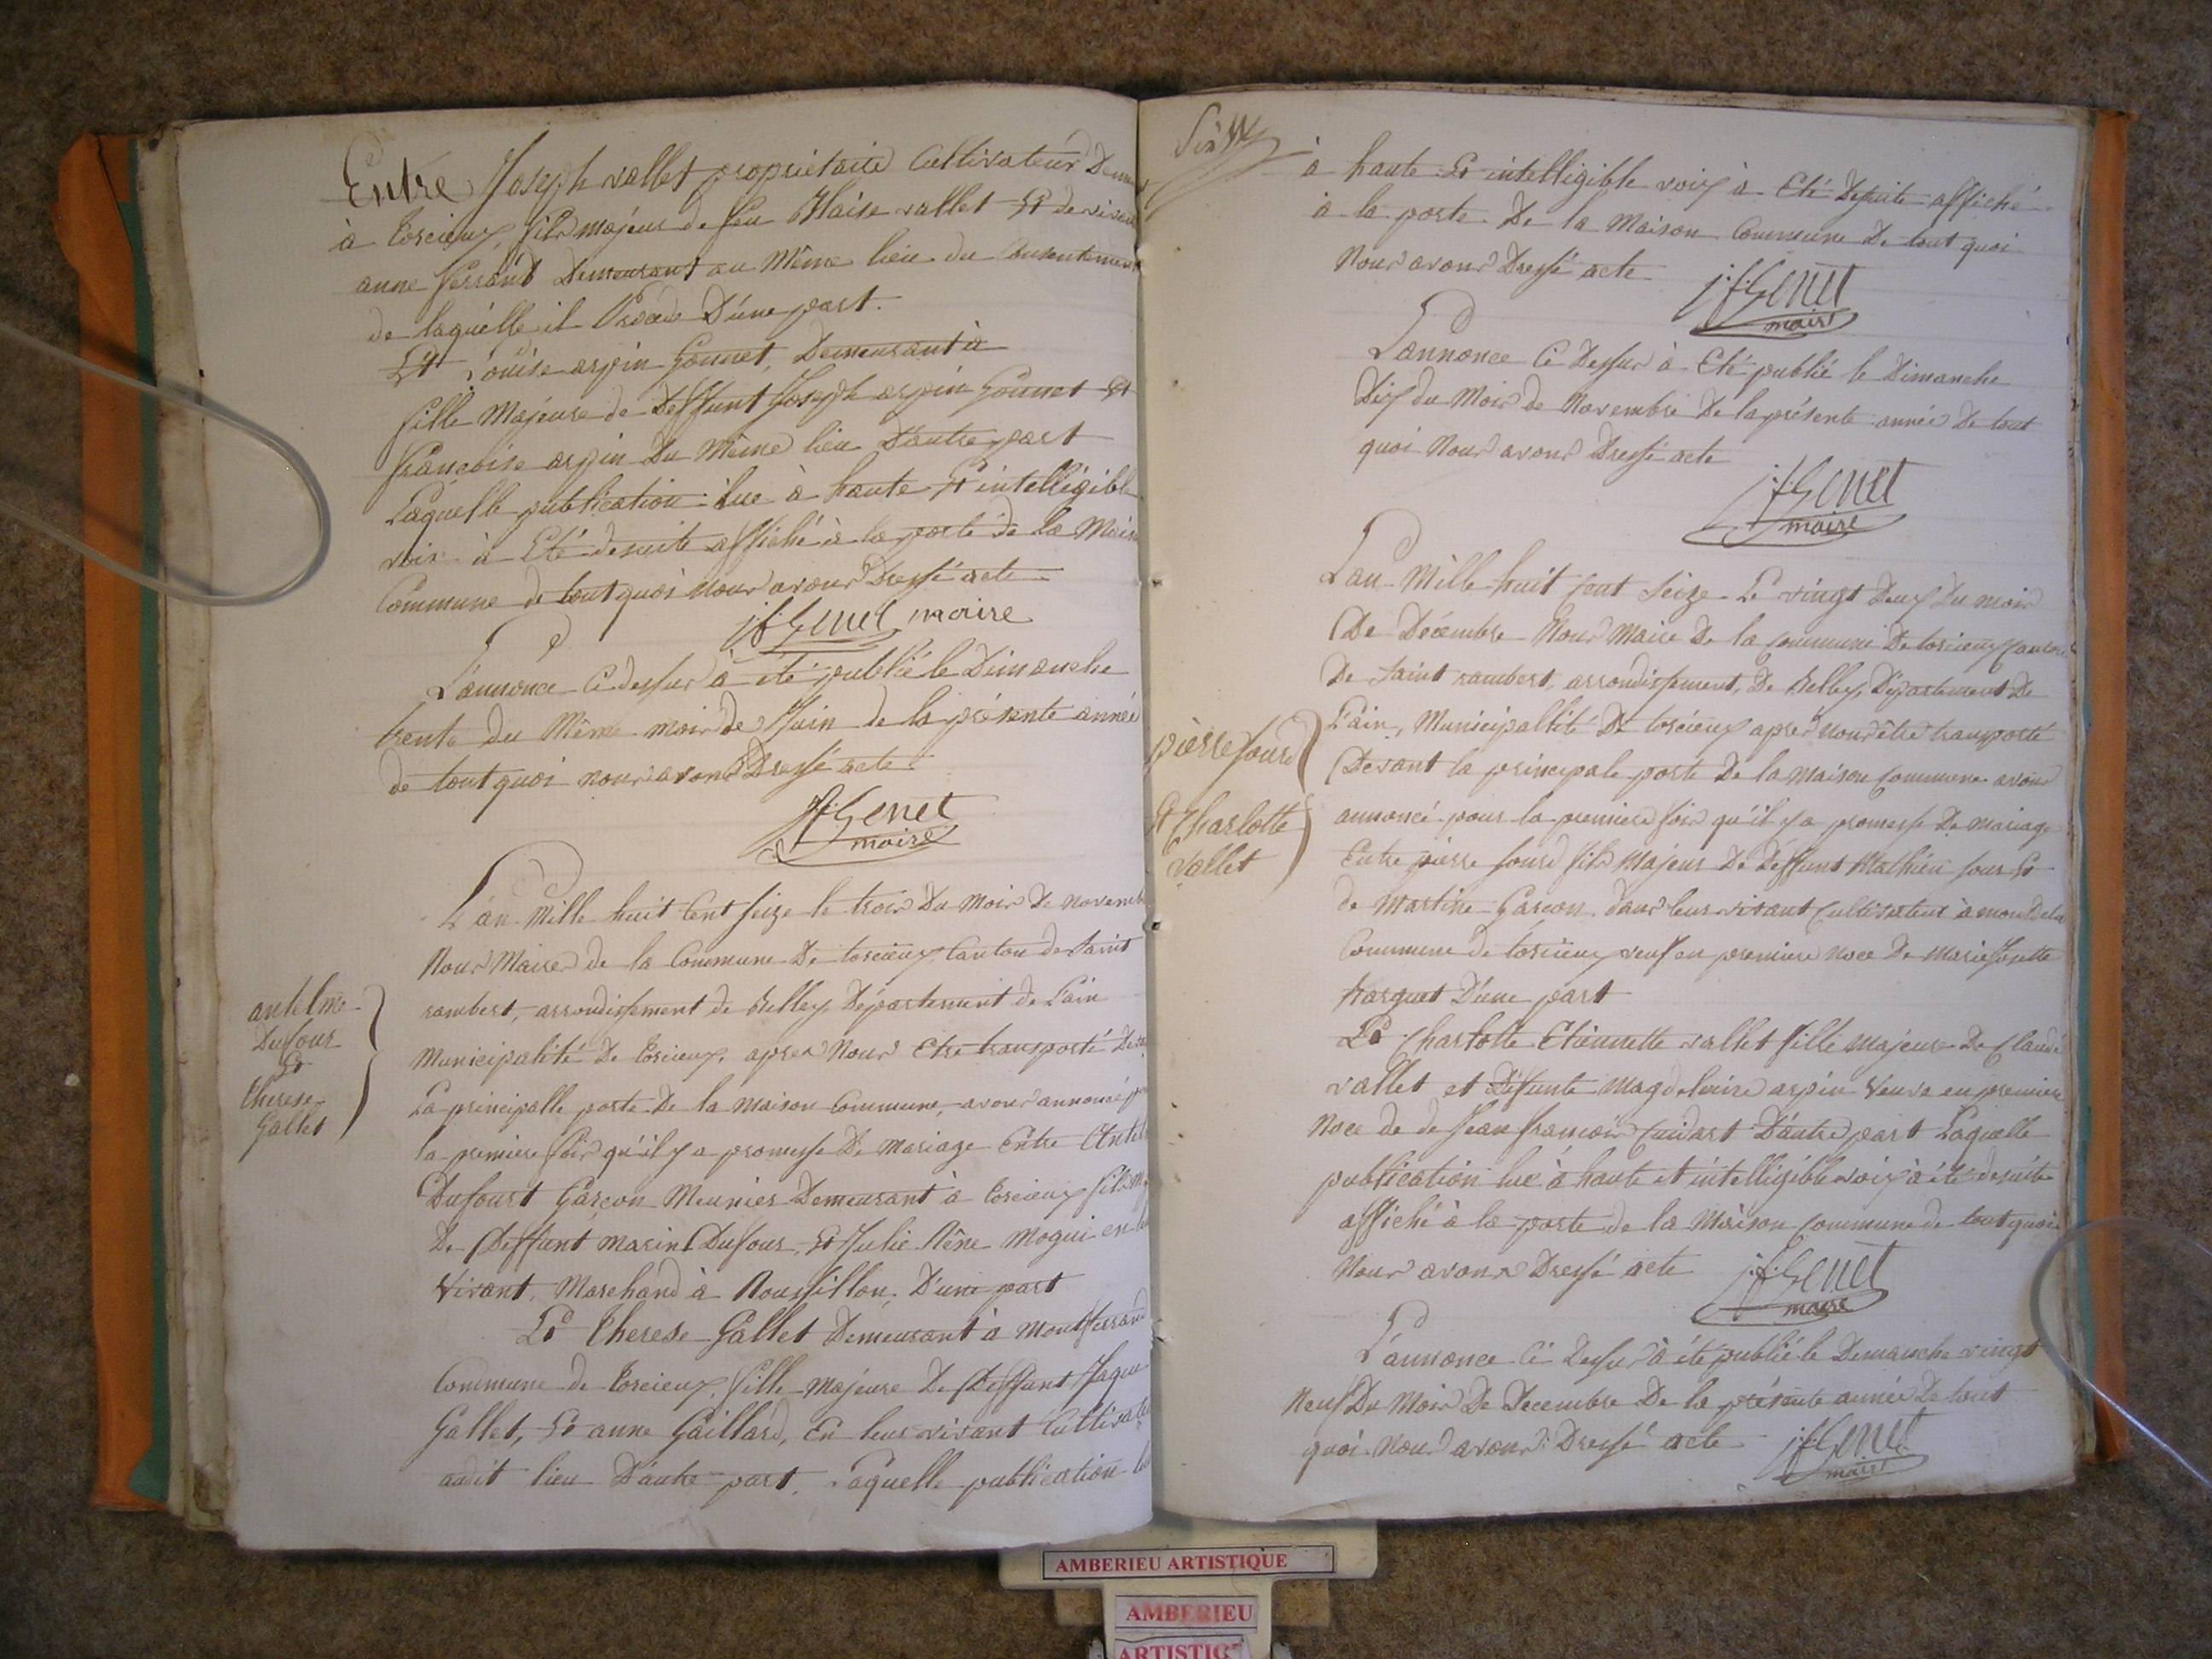 Entre Joseph vallet propriétaire Cultivateur
à torcieux, fils majeur de feu Blaise vallet Et de
anne ferrand Demeurant au Même lieu du Consentement
de laquelle il Procède D'une part.
Et Louise arpin Gonnet, Demeurant à
fille Majeure de Deffunt Joseph arpin Gonnet Et
francoise arpin Du Même lieu D'autre part
Laquelle publication lue à haute Et intelligible
voix à Eté desuite affiché à la porte de La
Commune de tout quoi Nous avons Dressé acte
jfGenet maire
L'annonce Cidessus à été publié le Dimanche
trente du Même mois de Juin de la présente année
de tout quoi nous avons Dressé acte.
jfGenet
maire
L'an Mille huit Cent seize le trois Du Mois De
Nous Maire de la Commune De torcieux Canton de Saint
anthelme
Dufour
Et
therese
Gallet
rambert, arrondissement de Belley Département de L'ain
Municipalité De torcieux, apres Nous Etre transporté
La principalle porte De la Maison Commune, avons annoncé
la premiere fois qu'il y a promesse De Mariage Entre
Dufourt Garçon Meunier Demeurant à torcieux fils
De Deffunt marin Dufour, Et Julie Rêne Mogui en
vivant, Marchand à Roussillon, D'une part
Et therese Gallet Demeurant à Montferrand
Commune de torcieux, fille majeure De Deffunt
Gallet, Et anne Gaillard, En leur vivant
audit lieu D'autre part, Laquelle publication
à haute Et intelligible voix à Eté Desuite affiché
à la porte De la Maison Commune De tout quoi
Nous avons Dressé acte
jfGenet
maire
L'annonce Ci Dessus à Eté publié le Dimanche
Dix du Mois de Novembre De la présente année De tout
quoi Nous avons Dressé acte
jfGenet
maire
L'an Mille huit Cent seize Le vingt Deux Du mois
De Décembre Nous Maire De la Commune De torcieux Canton
De Saint rambert, arrondissement, De Belley, Département De
pièrre four
Et Charlotte
vallet
L'ain, Municipallité De torcieux après nous être transporté
Devant la principale porte De la Maison Commune avons
annoncé pour la premiere fois qu'il y a promesse De mariage
Entre pierre four fils Majeur De Deffunt Mathieu four Et
de Martine Garcon dans leur vivant Cultivateur
Commune de torcieux veuf en premiere Noce De Marie Josette
D'une part
Et Charlotte Etiennette vallet fille majeure De Claude
vallet et Défunte Magdelaine arpin veuve en premiere
Noce de de Jean francois D'autre part Laquelle
publication lue à haute et intelligible voix à été desuite
affiché à la porte de la Maison Commune de tout quoi
Nous avons Dressé acte
jfGenet
maire
L'annonce Ci Dessus à été publié le Demanche vingt
neuf Du Mois De Decembre De la présente année De tout
quoi Nous avons Dressé acte
jfGenet
maire
AMBERIEU ARTISTIQUE
AMBERIEU
ARTISTIQ